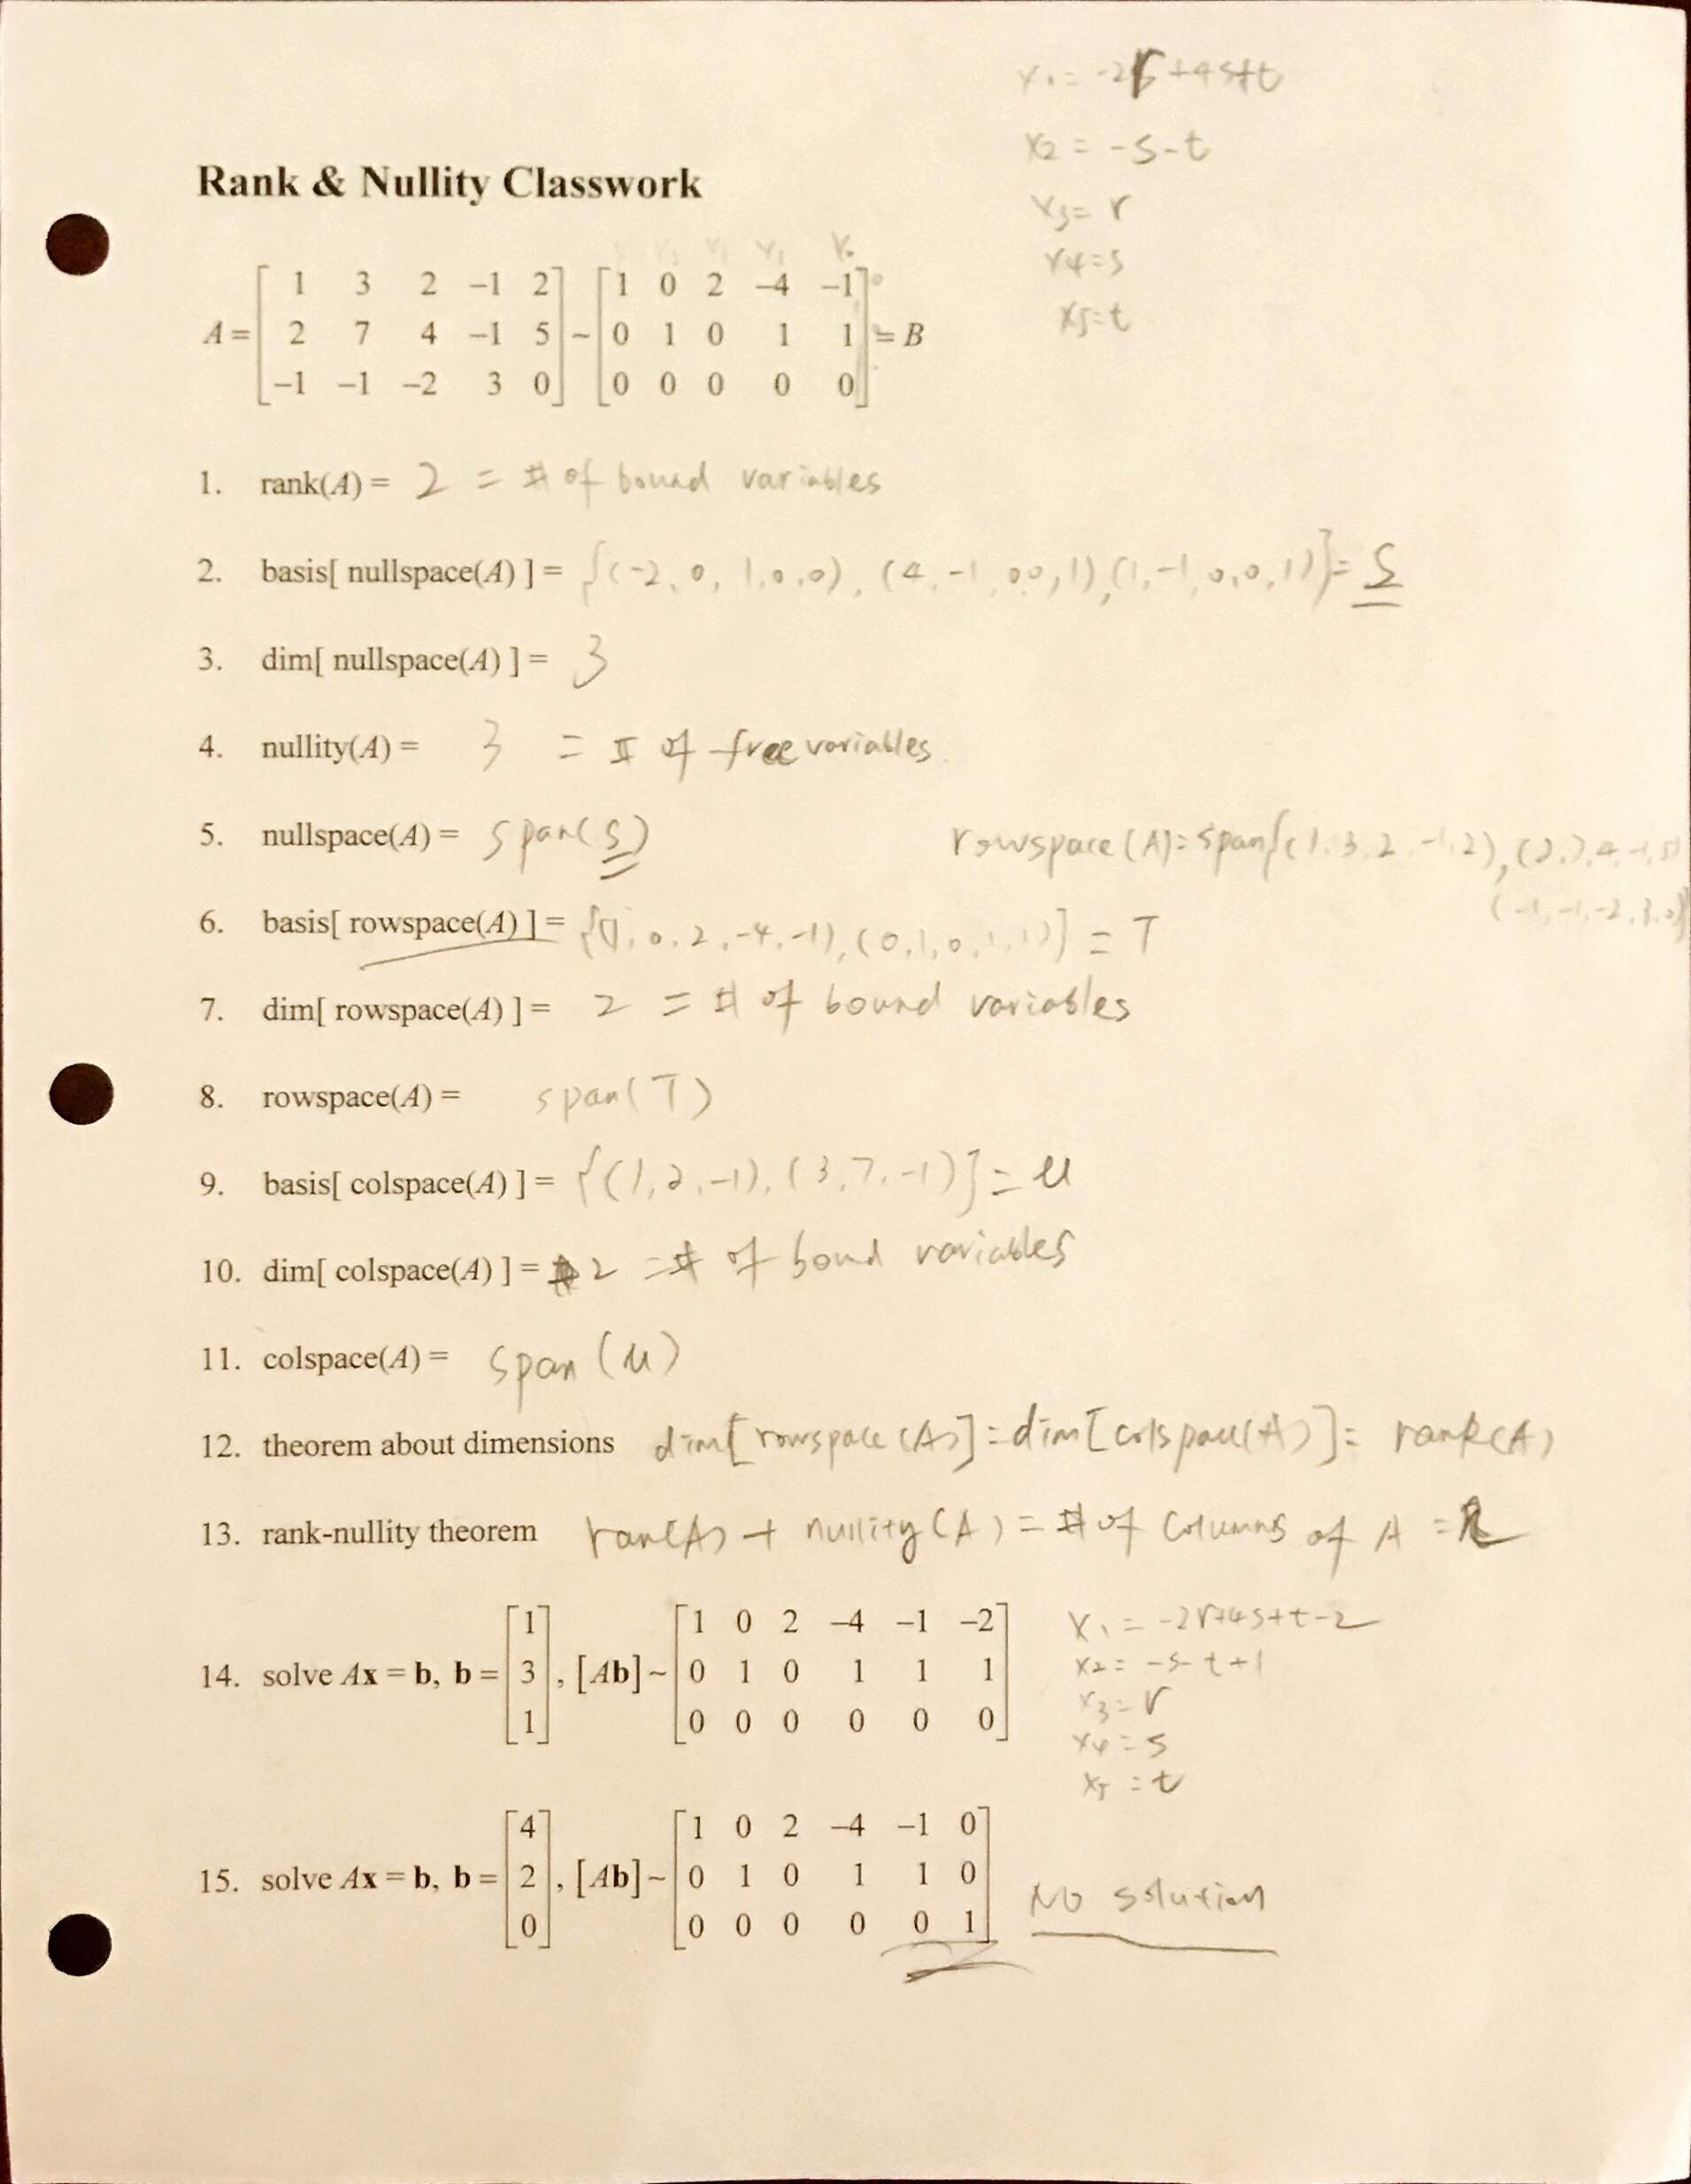 x₁ = -2r+4s+t
x2 = -s-t
x3= r
x4=s
x5=t
Rank & Nullity Classwork
A = [1 3 2 −1 2; 2 7 4 −1 5; −1 −1 −2 3 0] ~ [1 0 2 −4 −1; 0 1 0 1 1; 0 0 0 0 0] = B
1. rank(A) = 2 = # of bound variables
2. basis[ nullspace(A) ] = {(-2, 0, 1, 0, 0), (4, -1, 0 0, 1), (1, -1, 0, 0, 1)} = S
3. dim[ nullspace(A) ] = 3
4. nullity(A) = 3 = # of free variables
5. nullspace(A) = span(S)
rowspace(A)=span{(1,3,2,-1,2), (2,7,4,-1,5)
(-1,-1,-2,3,0)}
6. basis[ rowspace(A) ] = {(1, 0, 2, -4, -1), (0, 1, 0, 1, 1)} = T
7. dim[ rowspace(A) ] = 2 = # of bound variables
8. rowspace(A) = span(T)
9. basis[ colspace(A) ] = {(1, 2, -1), (3, 7, -1)} = u
10. dim[ colspace(A) ] = 2 = # of bound variables
11. colspace(A) = span (u)
12. theorem about dimensions dim[rowspace(A)] = dim[colspace(A)] = rank(A)
13. rank-nullity theorem ran(A) + nullity(A) = # of columns of A =
14. solve Ax = b, b = [1; 3; 1], [Ab] ~ [1 0 2 −4 −1 −2; 0 1 0 1 1 1; 0 0 0 0 0 0]
x₁ = -2r+4s+t-2
x2 = -s-t+1
x3 = r
x4 = s
x5 = t
15. solve Ax = b, b = [4; 2; 0], [Ab] ~ [1 0 2 −4 −1 0; 0 1 0 1 1 0; 0 0 0 0 0 1] No solution